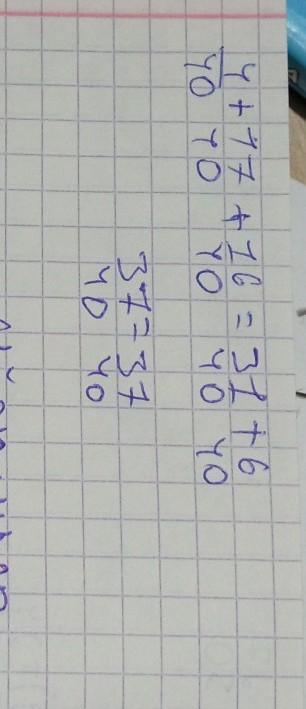 4/40 + 17/40 + 16/40 = 31/40 + 6/40
37/40 = 37/40